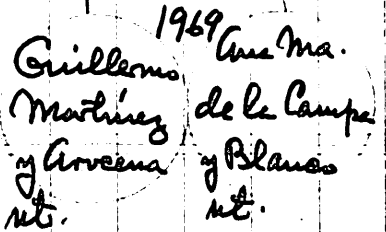 1969
Guillermo
Martínez
y Arocena
nti.
Ana Ma.
de la Campa
y Blanco
nti.